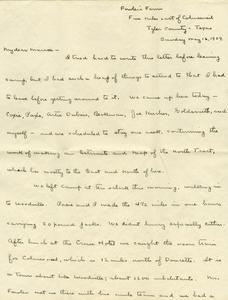 Fowler's Farm
Five miles east of Colmesneil
Tyler County - Texas
Sunday May 16, 1909.
My dear Mamma -
I tried hard to write this letter before leaving
camp, but I had such a heap of things to attend to that I had
to leave before getting around to it. We came up here today -
Cope, Paxie, Artie DuBois, Berkman, Joe Harber, Goldsmith, and
myself - and are scheduled to stay one week, continuing the
work of making an estimate and map of the North Tract,
which lies mostly to the East and North of here.
We left Camp at ten oclock this morning, walking in
to Woodville. Paxie and I made the 4 1/2 miles in one hour
carrying 20 pound packs. We didn't hurry especially either.
After lunch at the Cruse Hotel we caught the noon train
for Colmesneil, which is 12 miles north of Doucette. It is
a town about like Woodville; about 1200 inhabitants. Mr.
Fowler met us there with his mule team and we had a